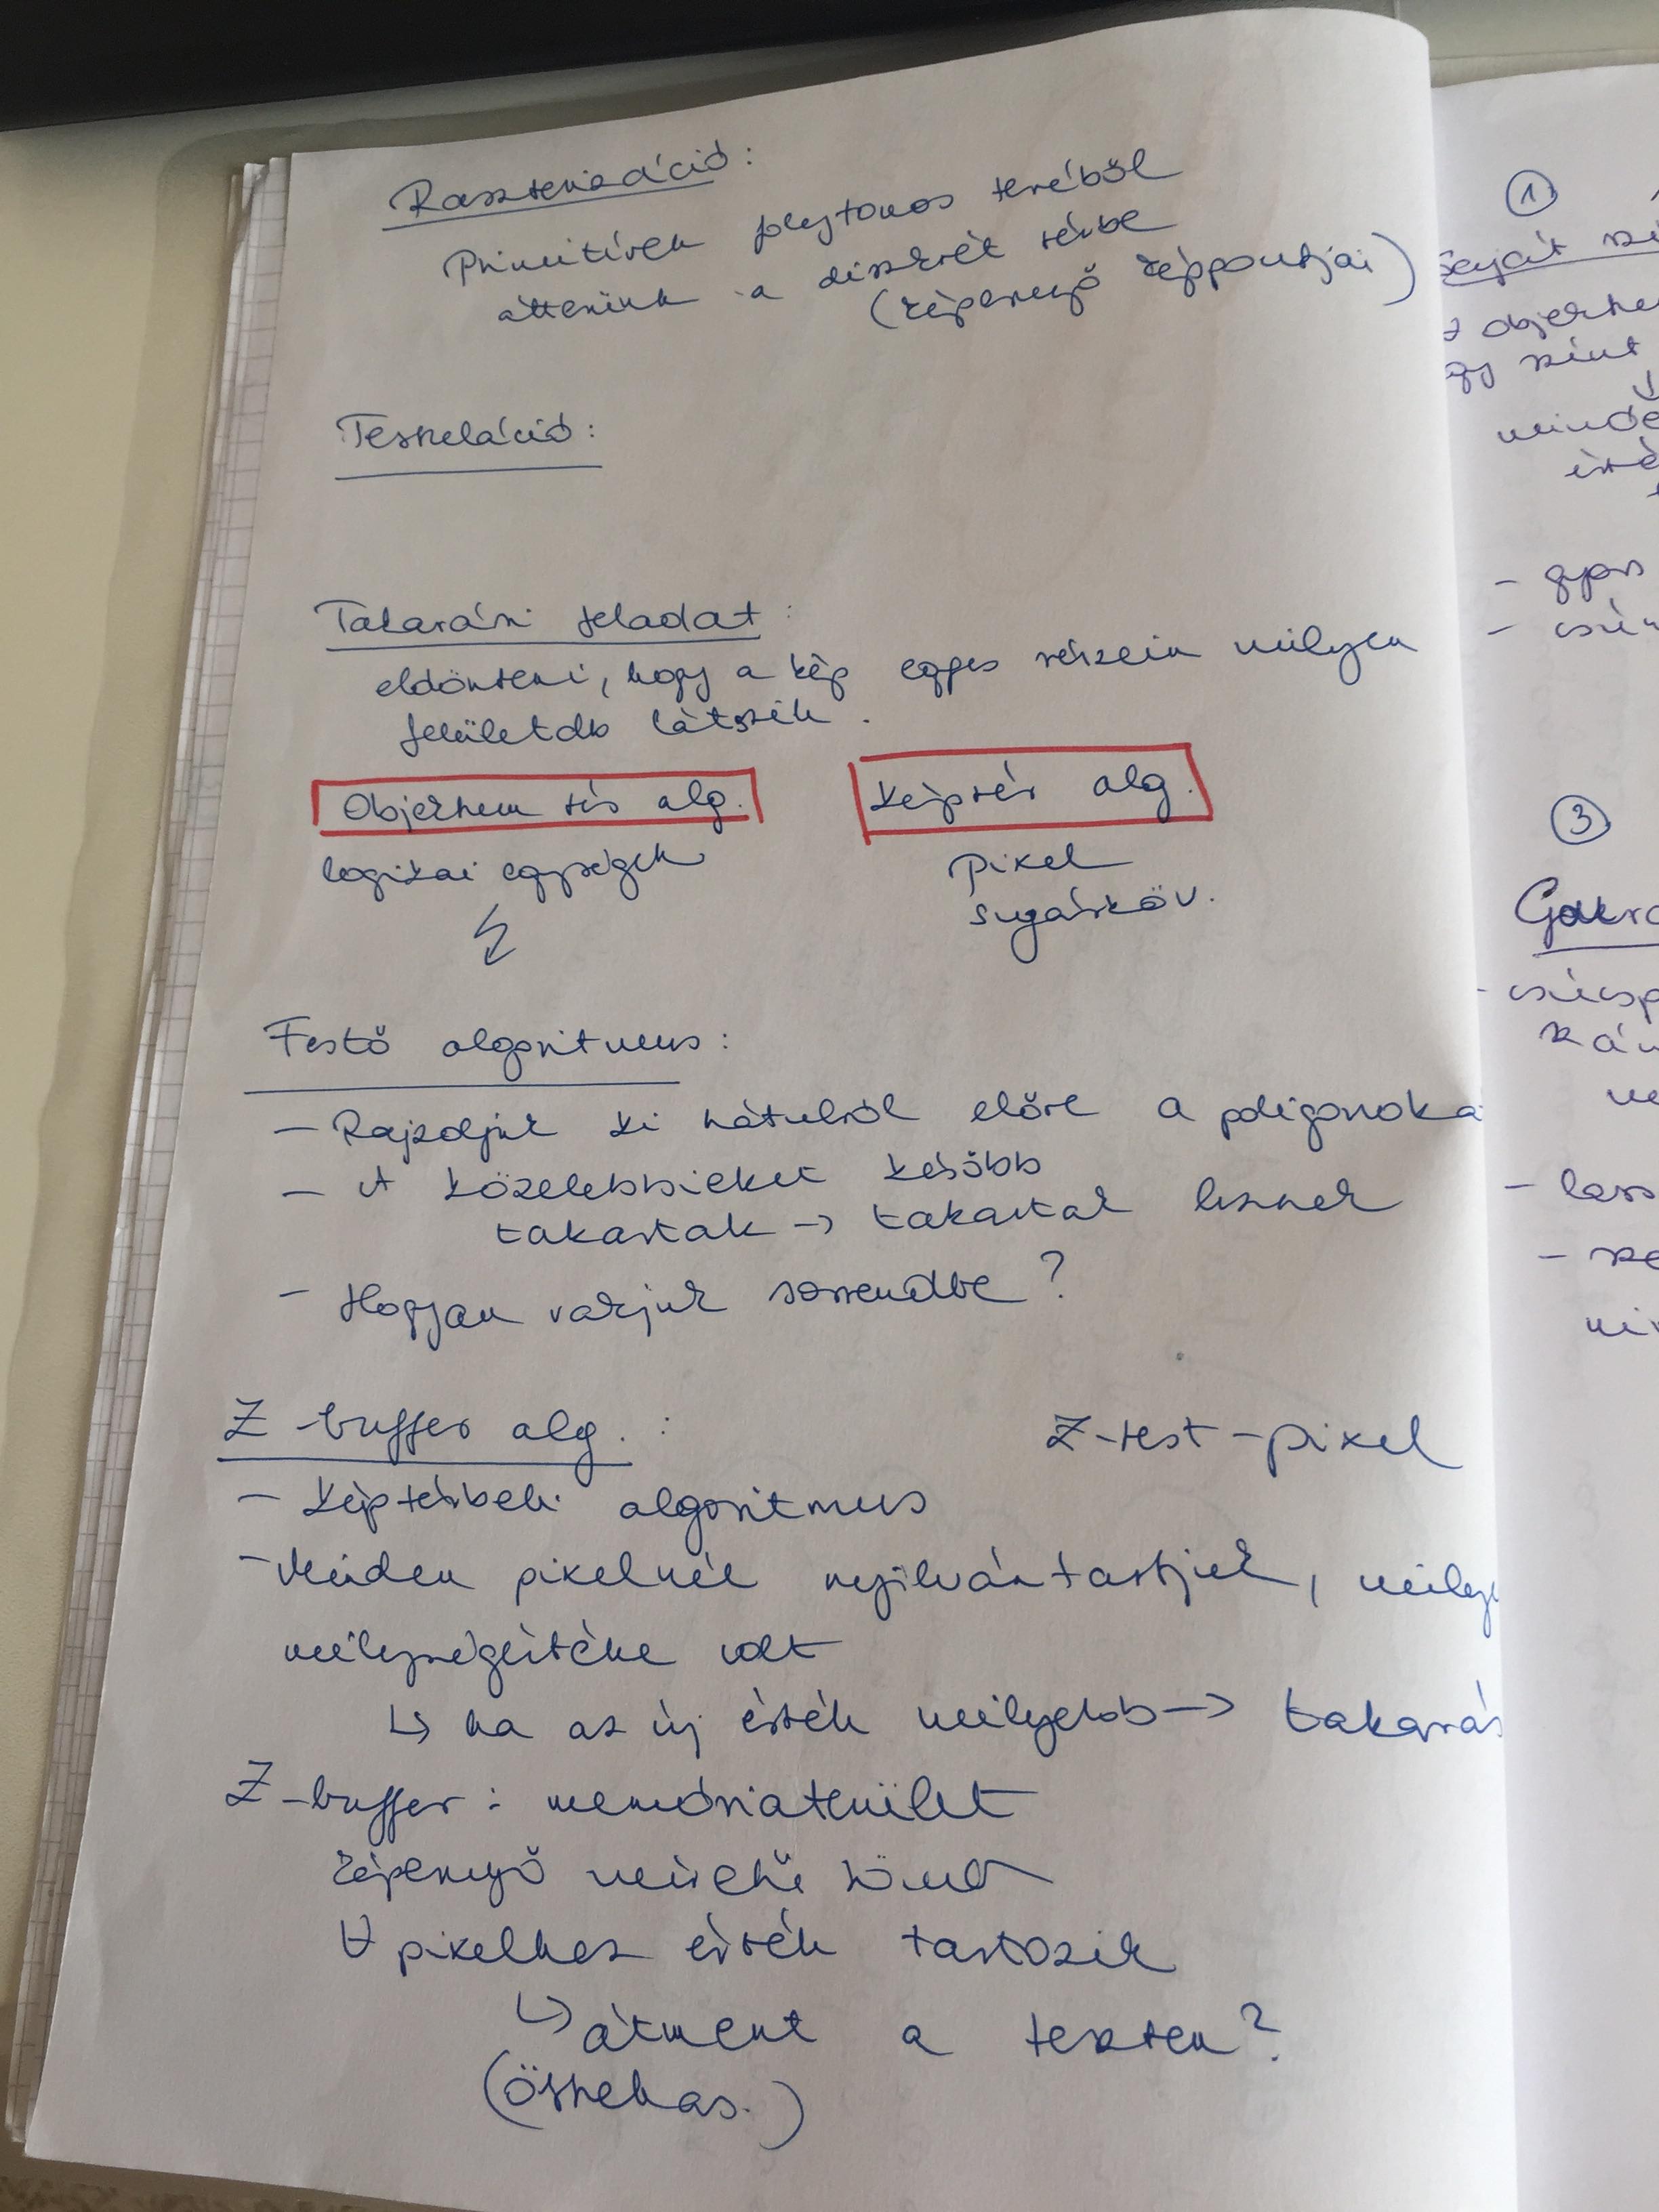 Raszterizáció:
Primitívek folytonos teréből
áttérünk a diszkrét térbe
(képernyő képpontjai)
Teszeláció:
Takarási feladat:
eldönteni, hogy a kép egyes részein milyen
felületdb látszik.
Objektum tér alg.
Képtér alg.
logikai egységek
pixel
sugárköv.
Festő algoritmus:
- Rajzoljuk ki hátulról előre a poligonoka
- A közelebbieket később
takartak → takartak lesznek
- Hogyan rakjuk sorrendbe?
Z-buffer alg.:
Z-test-pixel
- Képtérbeli algoritmus
- Minden pixelnél nyilvántartjuk, milye
mélységértéke volt
↳ ha az új érték mélyebb → takarás
Z-buffer: memóriaterület
képernyő méretű tömb
∀ pixelhez érték tartozik
↳ átment a teszten?
(összehas.)
①
Saját szí
objektu
egy színt
↓
minde
érté
- gyors
③
Gour
- csúcsp
- lass